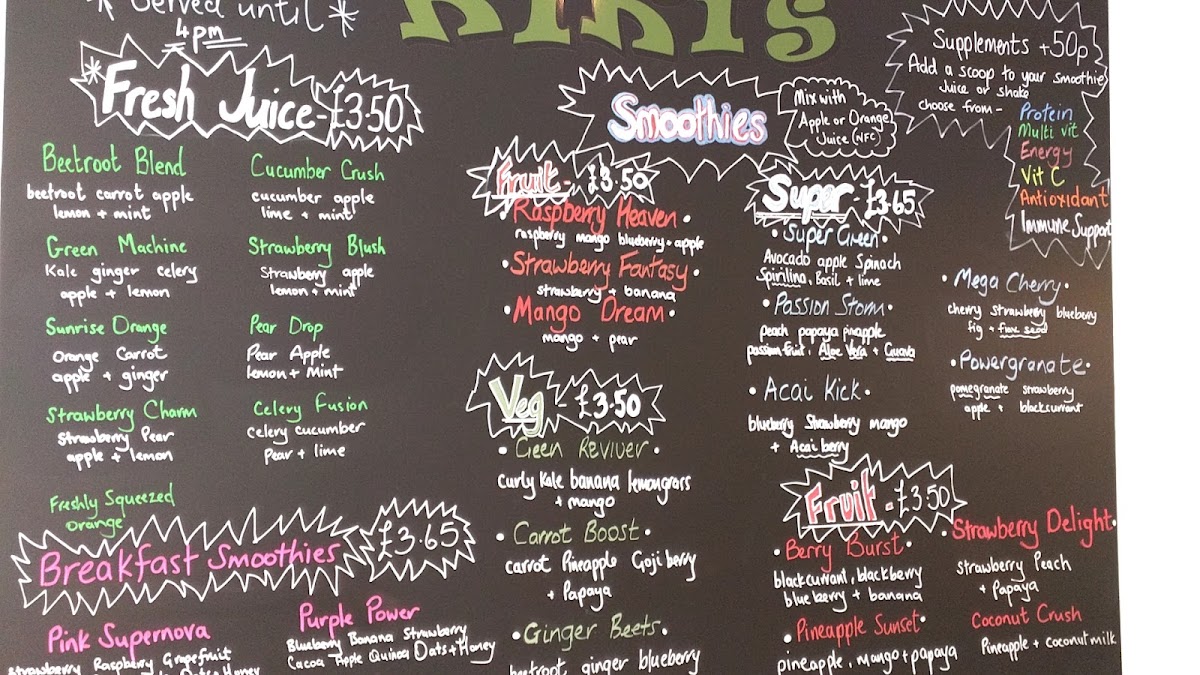 * Served until *
4pm
KIKI's
* Fresh Juice - £3.50
Beetroot Blend
beetroot carrot apple
lemon + mint
Green Machine
Kale ginger celery
apple + lemon
Sunrise Orange
Orange Carrot
apple + ginger
Strawberry Charm
Strawberry Pear
apple + lemon
Freshly Squeezed
Orange
Cucumber Crush
cucumber apple
lime + mint
Strawberry Blush
Strawberry apple
lemon + mint
Pear Drop
Pear Apple
lemon + Mint
Celery Fusion
Celery cucumber
Pear + lime
Breakfast Smoothies £3.65
Pink Supernova
Strawberry Raspberry Grapefruit
Purple Power
Blueberry Banana Strawberry
Cacoa Apple Quinoa Oats + Honey
Smoothies
Mix with
Apple or Orange
Juice (NFC)
Fruit - £3.50
Raspberry Heaven
raspberry mango blueberry + apple
Strawberry Fantasy
strawberry + banana
Mango Dream
mango + pear
Veg - £3.50
Geen Reviver
Curly Kale banana lemongrass
+ mango
Carrot Boost
carrot Pineapple Goji berry
+ Papaya
Ginger Beets
beetroot ginger blueberry
Super - £3.65
Super Green
Avocado apple Spinach
Spirilina, Basil + lime
Passion Storm
peach papaya pineapple
passion fruit, Aloe Vera + Guava
Acai Kick
blueberry Strawberry mango
+ Acai berry
Mega Cherry
cherry strawberry blueberry
fig + flax seed
Powergranate
pomegranate strawberry
apple + blackcurrant
Fruit - £3.50
Berry Burst
blackcurrant, blackberry
blueberry + banana
Pineapple Sunset
pineapple, mango + papaya
Strawberry Delight
Strawberry Peach
+ Papaya
Coconut Crush
Pineapple + coconut milk
Supplements +50p
Add a scoop to your smoothie
Juice or shake
choose from -
Protein
Multi vit
Energy
Vit C
Antioxidant
Immune Support